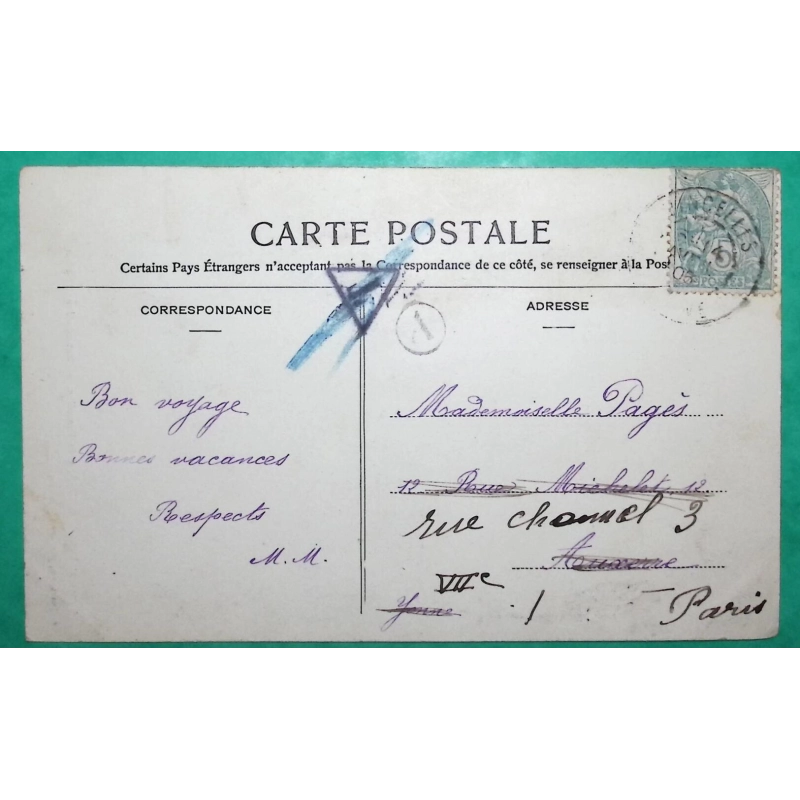 CARTE POSTALE
Certains Pays Étrangers n'acceptant pas la Correspondance de ce côté, se renseigner à la Post
CORRESPONDANCE
ADRESSE
Bon voyage
Bonnes vacances
Respects
M. M.
A
Mademoiselle Pagès
12 Rue Michelet 12
rue Chomel 3
Auxerre
VIIe
Yonne
Paris
POSTES